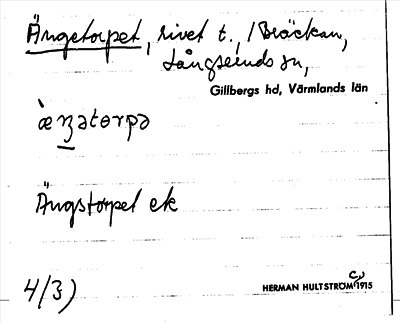 Ängetorpet, rivet t., / Bräckan,
Långseruds sn,
Gillbergs hd, Värmlands län
æ̀ŋətɵrpə
Ängstorpet ek
4/3)
HERMAN HULTSTRÖM 1915